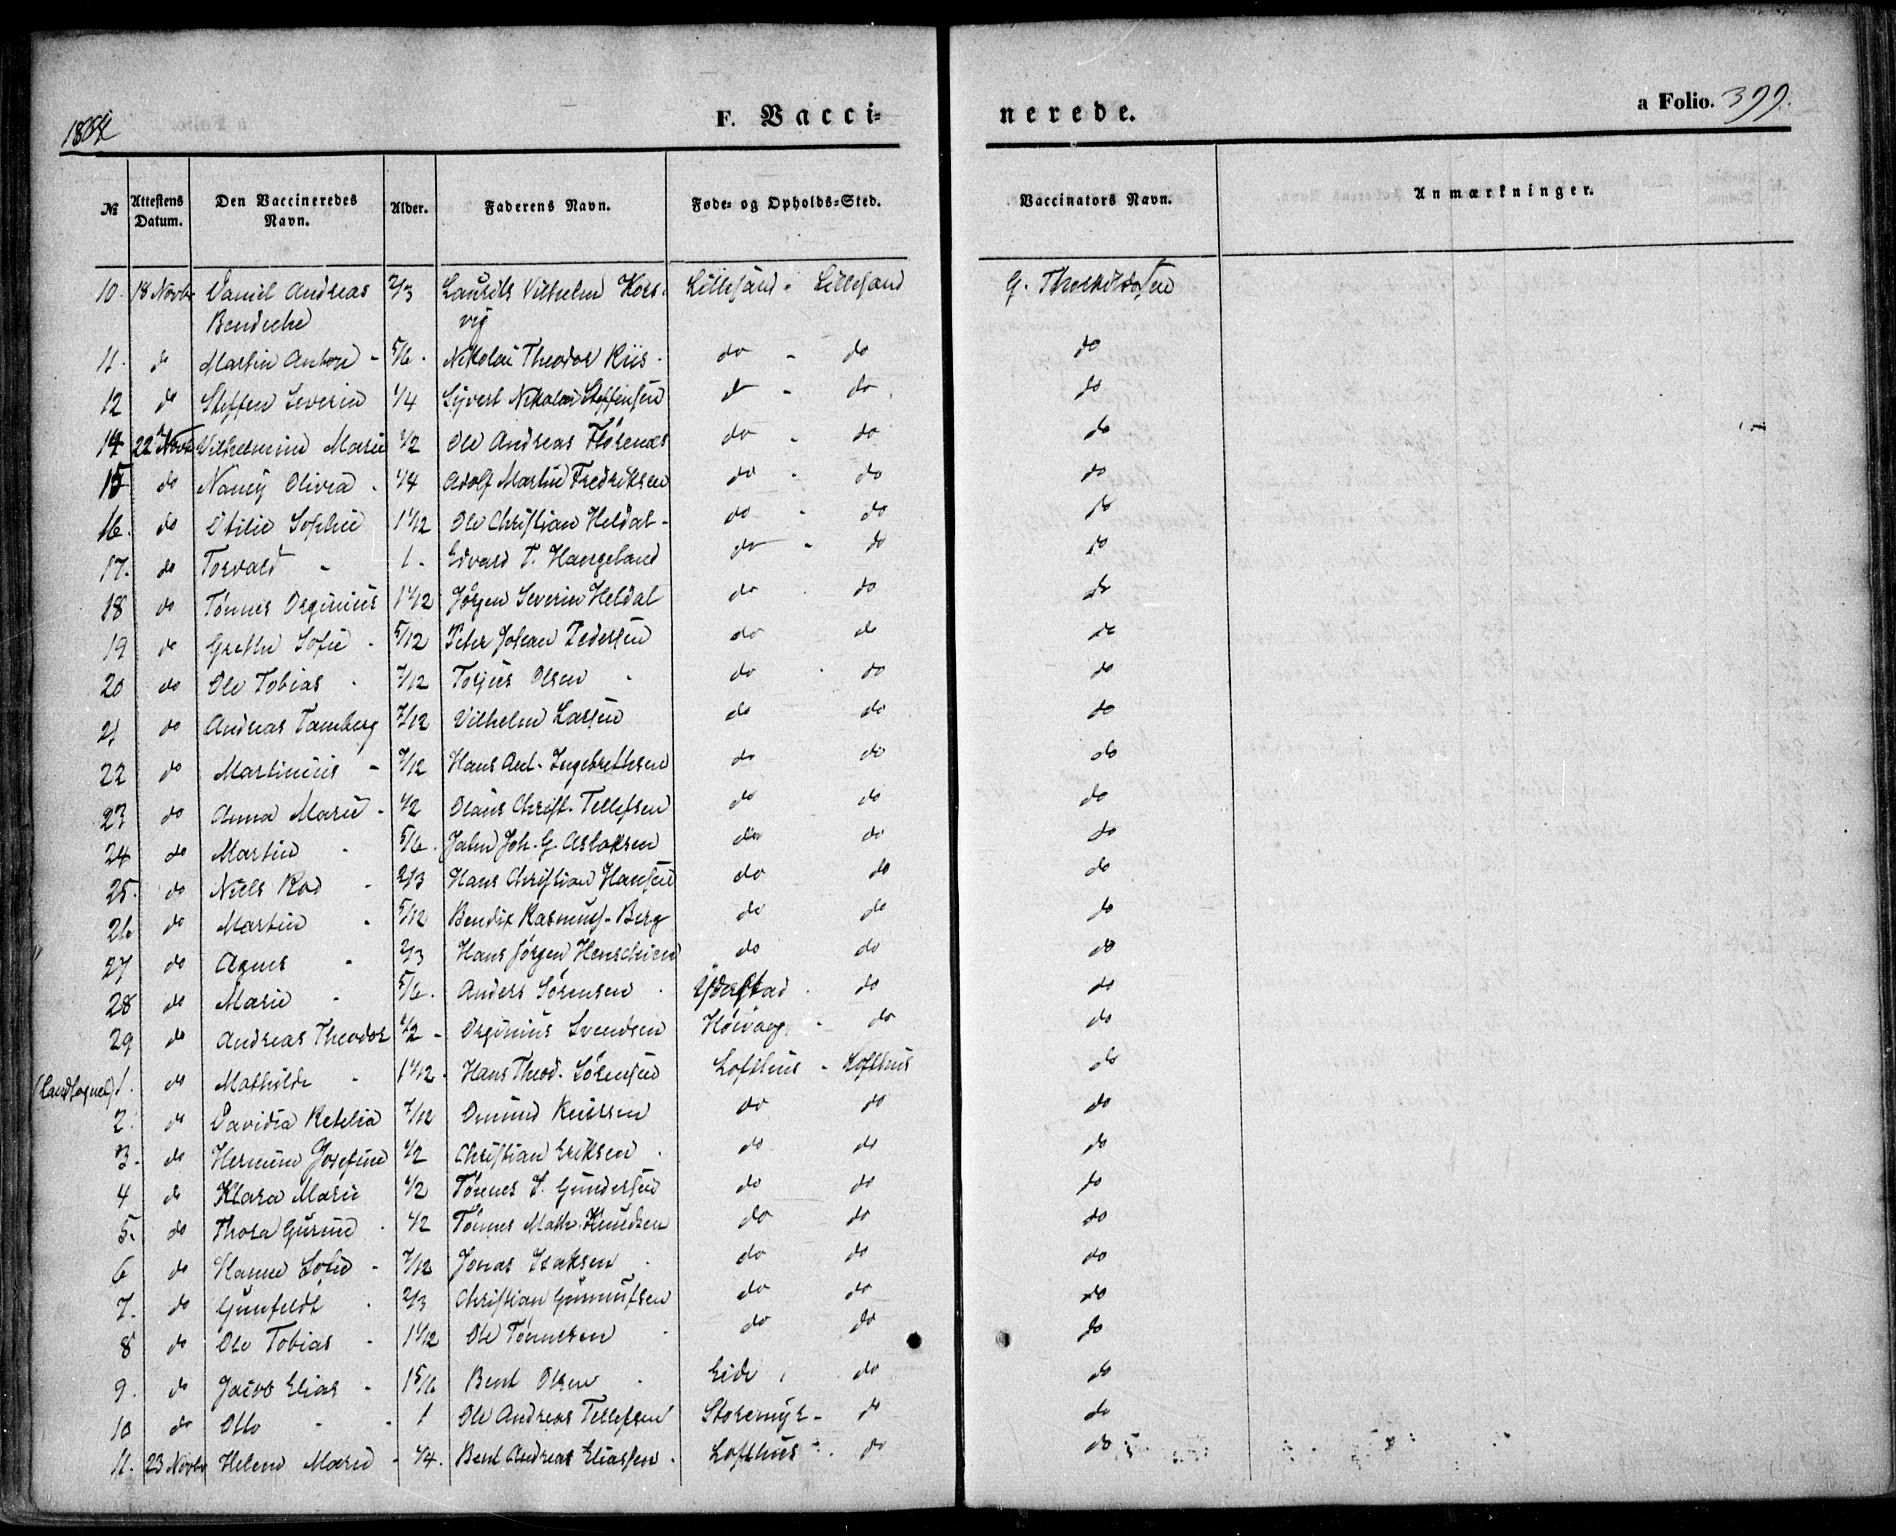 1864
F. Vacci-
nerede.
a Folio. 399.
№ | Attestens Datum. | Den Vaccineredes Navn. | Alder. | Faderens Navn. | Føde- og Opholds-Sted. | Vaccinators Navn. | Anmærkninger.
10. 18 Novbr Daniel Andreas 2/3 Laurits Vilhelm Kors- Lillesand - Lillesand G. Thorkildsen
Bendiche vig
11. do Martin Anton - 5/6. Nikolai Theodor Riis. do - do do
12 do Steffen Severin 1/4 Syvert Nikolai Steffensen do - do. do
14 22 Novb Vilhelmine Marie 1/2 Ole Andreas Florenæs do - do do
15 do Nancy Olivia. 1/4 Adolf Martin Fredriksen do - do do
16. do Otilie Sophie 1 1/12 Ole Christian Heldal- do - do do
17. do Torvald - 1. Edvard T. Haugeland do - do do
18 do Tønnes Orginius 1 1/12 Jørgen Severin Heldal do . do do
19 do Grethe Sofie . 5/12 Peter Johan Pedersen do do do
20 do Ole Tobias . 7/12 Torjus Olsen do . do do
21 do Andreas Tamberg 7/12 Vilhelm Larsen do do do
22 do Martinius - 7/12 Hans Ant. Ingebrethsen do do do
23 do Anna Marie - 1/2 Olaus Christ. Tellefsen do do do
24 do Martin . 5/6. Jahn Joh. G. Aslaksen do do do
25. do Niels Rod - 2/3 Hans Christian Hansen do do do
26 do Martin . 5/12 Bendix Rasmus. Berg do do do
27 do Agnes - 2/3 Hans Jørgen Henschien do do do
28 do Marie - 5/6. Anders Sørensen . do do
29 do Andreas Theodor 1/2 - Orginius Svendsen Høivaag - do do
(Landsognet) 1. do Mathilde - 1 1/12. Hans Theod. Sørensen Lofthus - Lofthus do
2. do Davidia Retelia 7/12 Omund Knudsen do do do
3. do Hermine Josefine 1/2 Christian Eriksen . do do do
4 do Klara Marie 1/2 Tønnes T. Gundersen do do do
5. do Thora Gurine . 1/2 Tønnes Math. Knudsen do do do
6 do Hanne Sofie - 7/12 Jonas Isaksen . do do do
7. do Gunfeldt . 2/3 Christian Gunnufsen do do do
8 do Ole Tobias - 1 1/12 Ole Tønnesen . do do do
9. do Jacob Elias - 1 5/6 Bent Olsen . Eide, do do
10 do Otto - 1 Ole Andreas Tellefsen Storemyr - do do
11. 23 Novbr Helene Marie - 1/4. Bent Andreas Eliassen . Lofthus - do do